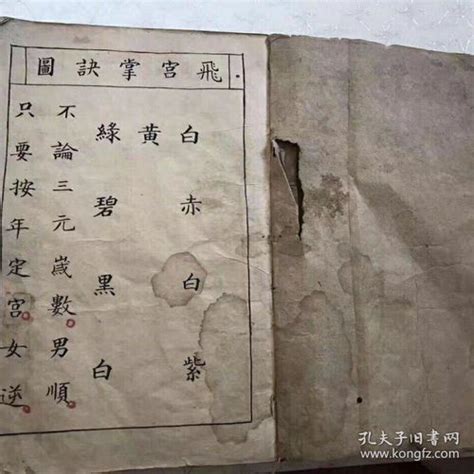 飛宮掌訣圖
白赤白紫
黃
綠碧黑白
不論三元歲數男順
只要按年定宮女逆
孔夫子旧书网
www.kongfz.com